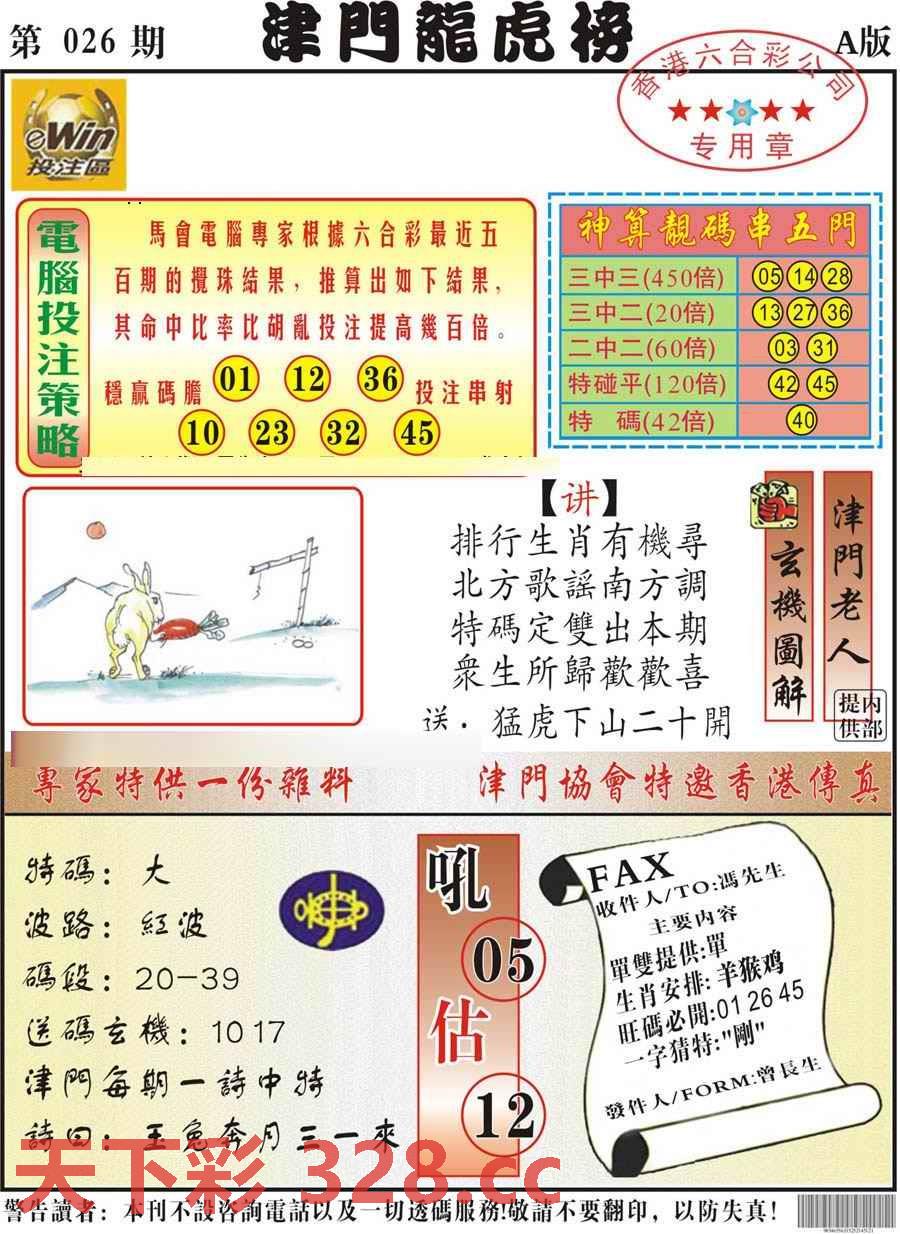 第 026 期
津門龍虎榜
A版
香港六合彩公司
专用章
eWin
投注區
電腦投注策略
馬會電腦專家根據六合彩最近五
百期的攪珠結果，推算出如下結果，
其命中比率比胡亂投注提高幾百倍。
穩贏碼膽 01 12 36 投注串射
10 23 32 45
神算靚碼串五門
三中三(450倍) 05 14 28
三中二(20倍) 13 27 36
二中二(60倍) 03 31
特碰平(120倍) 42 45
特 碼(42倍) 40
【讲】
排行生肖有機尋
北方歌謠南方調
特碼定雙出本期
衆生所歸歡歡喜
送·猛虎下山二十開
玄機圖解
津門老人
内部提供
專家特供一份雜料
津門協會特邀香港傳真
特碼：大
波路：紅波
碼段：20—39
送碼玄機：10 17
津門每期一詩中特
詩曰：玉兔奔月三一來
吼
05
估
12
FAX
收件人/TO:馮先生
主要内容
單雙提供:單
生肖安排:羊猴鸡
旺碼必開:01 26 45
一字猜特:"剛"
發件人/FORM:曾長生
天下彩 328.cc
警告讀者：本刊不設咨詢電話以及一切透碼服務!敬請不要翻印，以防失真!